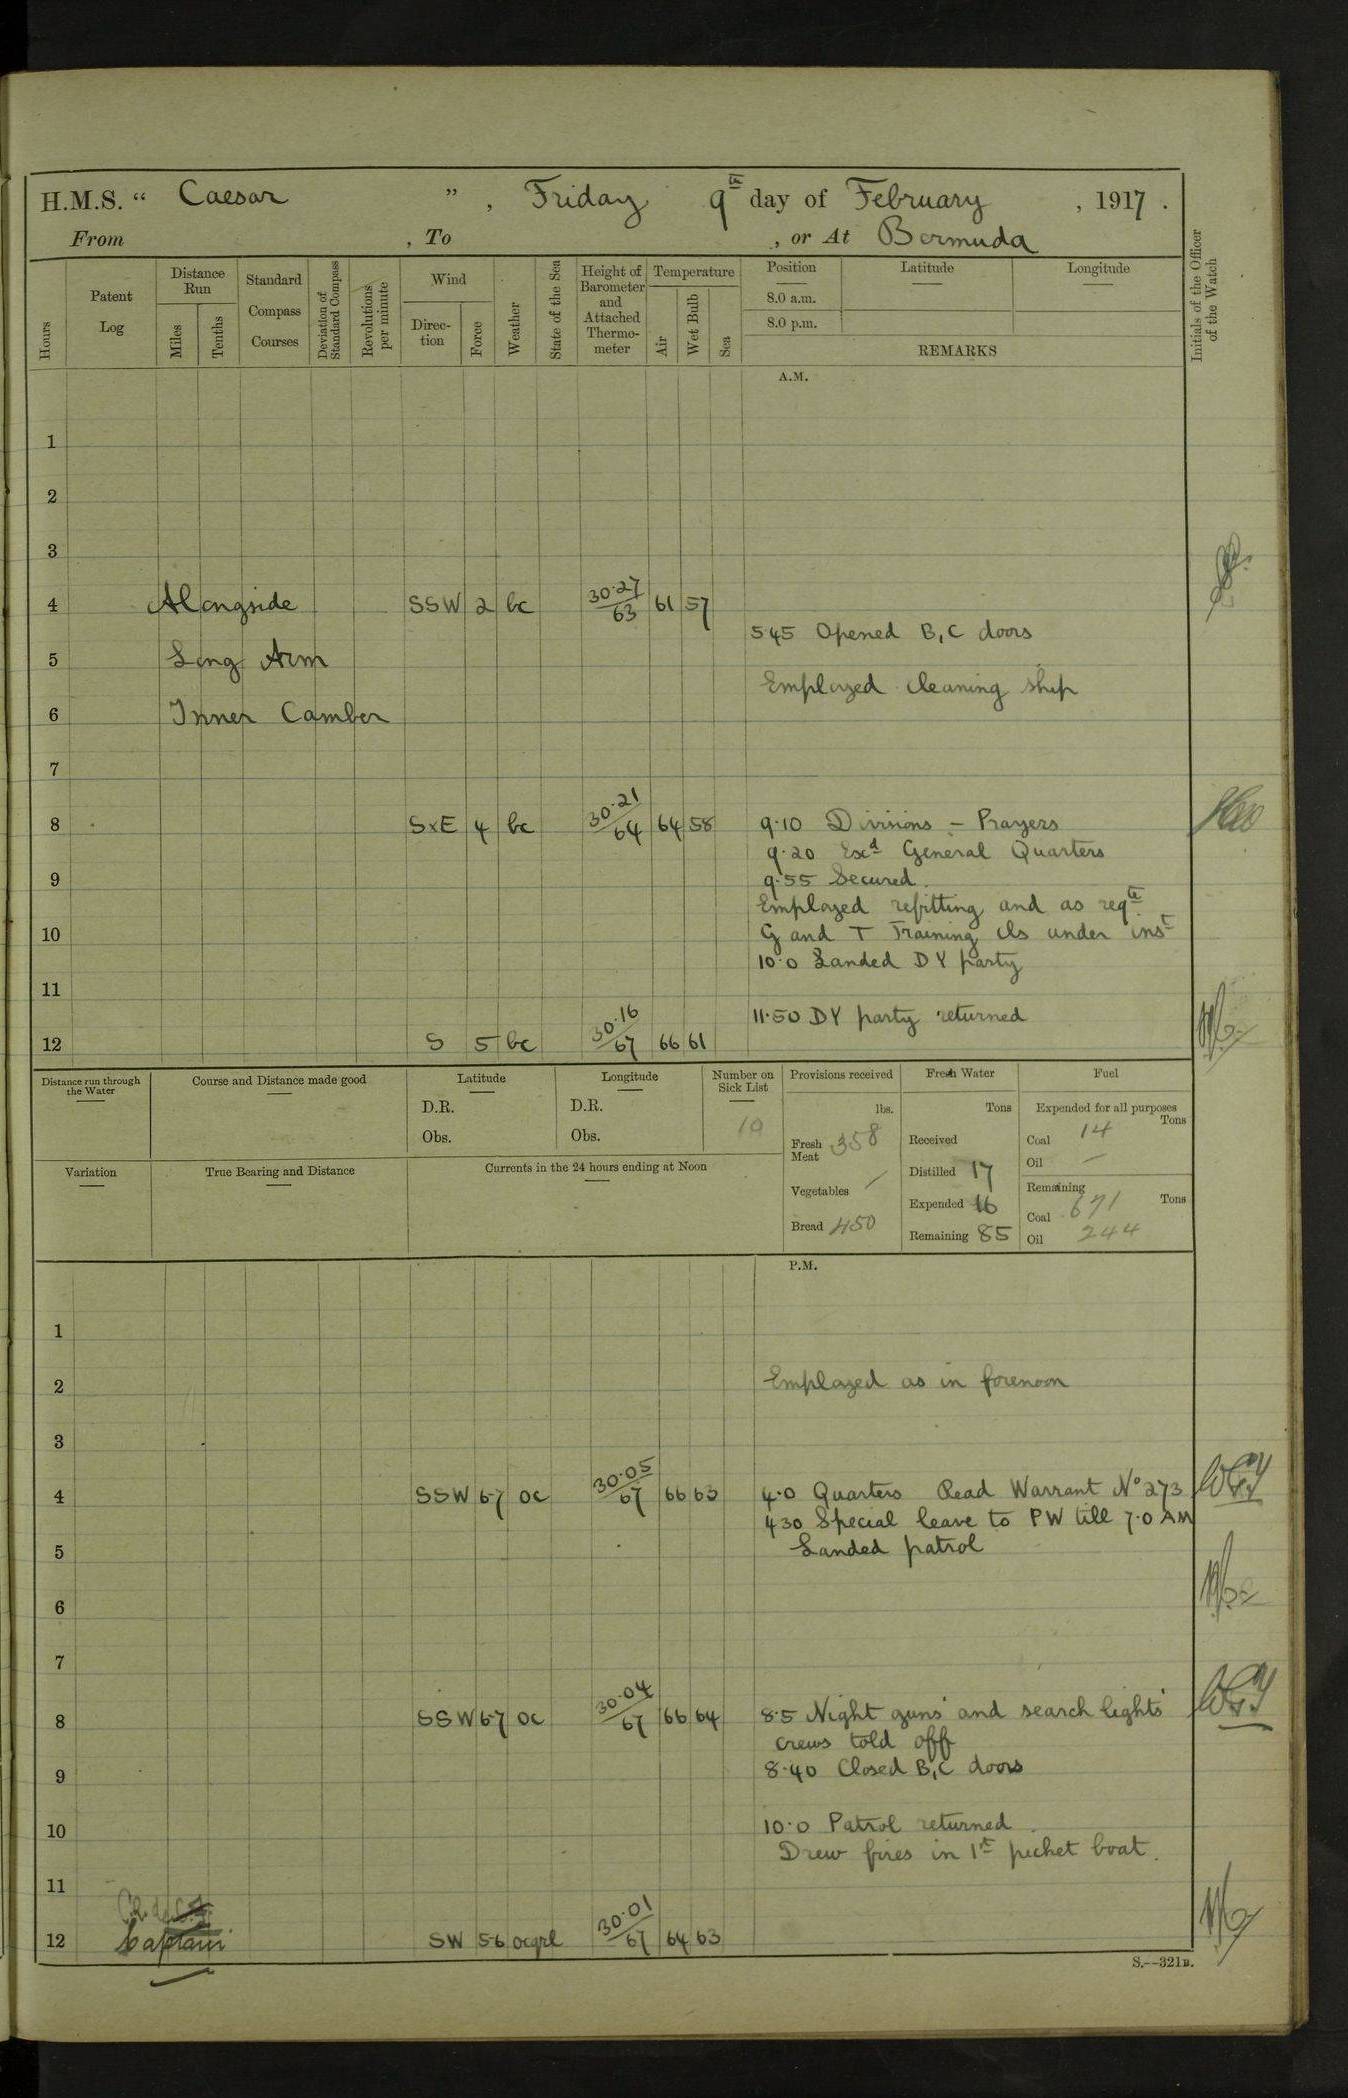 H.M.S. “ Caesar ” , Friday 9th day of February , 1917 .
From , To , or At Bermuda
Hours
Patent Log
Distance Run
Miles
Tenths
Standard Compass Courses
Deviation of Standard Compass
Revolutions per minute
Wind
Direc-tion
Force
Weather
State of the Sea
Height of Barometer and Attached Thermo-meter
Temperature
Air
Wet Bulb
Sea
Position
8.0 a.m.
8.0 p.m.
Latitude
Longitude
REMARKS
Initials of the Officer of the Watch
A.M.
1
2
3
4 Alongside SSW 2 bc 30·27 / 63 61 57
545 Opened B,C doors
5 Long Arm
Employed cleaning ship
6 Inner Camber
7
8 SxE 4 bc 30·21 / 64 64 58 9·10 Divisions – Prayers
9·20 Exd General Quarters
9 9·55 Secured.
Employed refitting and as reqte
10 G and T Training cls under inst
10·0 Landed DY party
11
11·50 DY party returned
12 S 5 bc 30·16 / 67 66 61
Distance run through the Water
Course and Distance made good
Latitude
D.R.
Obs.
Longitude
D.R.
Obs.
Number on Sick List
10
Provisions received
lbs.
Fresh Meat 358
Vegetables /
Bread 450
Fresh Water
Tons
Received
Distilled 17
Expended 16
Remaining 85
Fuel
Expended for all purposes
Tons
Coal 14
Oil –
Remaining
Tons
Coal 671
Oil 244
Variation
True Bearing and Distance
Currents in the 24 hours ending at Noon
P.M.
1
2 Employed as in forenoon
3
4 SSW 6-7 oc 30·05 / 67 66 63 4·0 Quarters Read Warrant No 273
430 Special leave to PW till 7·0 AM
5 Landed patrol
6
7
8 SSW 6-7 oc 30·04 / 67 66 64 8·5 Night guns' and search lights'
crews told off
9 8·40 Closed B,C doors
10 10·0 Patrol returned.
Drew fires in 1st picket boat.
11
12 Captain SW 5-6 ocqrl 30·01 / 67 64 63
S.--321B.